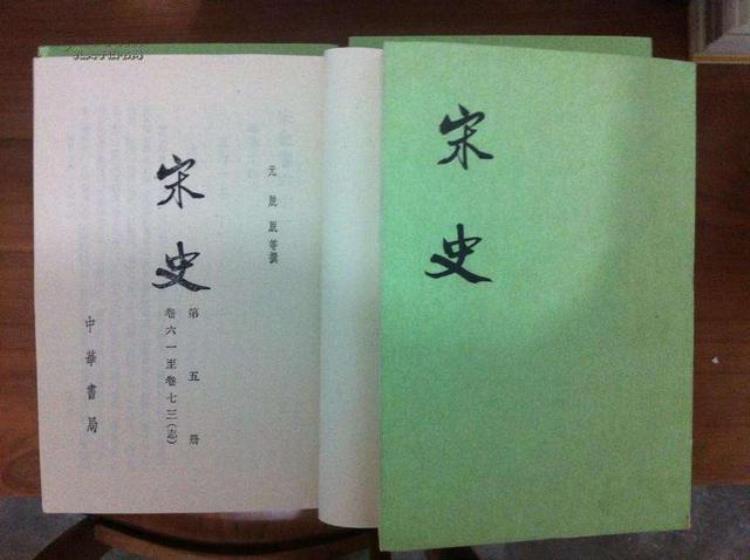 宋史
元 脫脫等撰
宋史
第五册
卷六一至卷七三(志)
中華書局